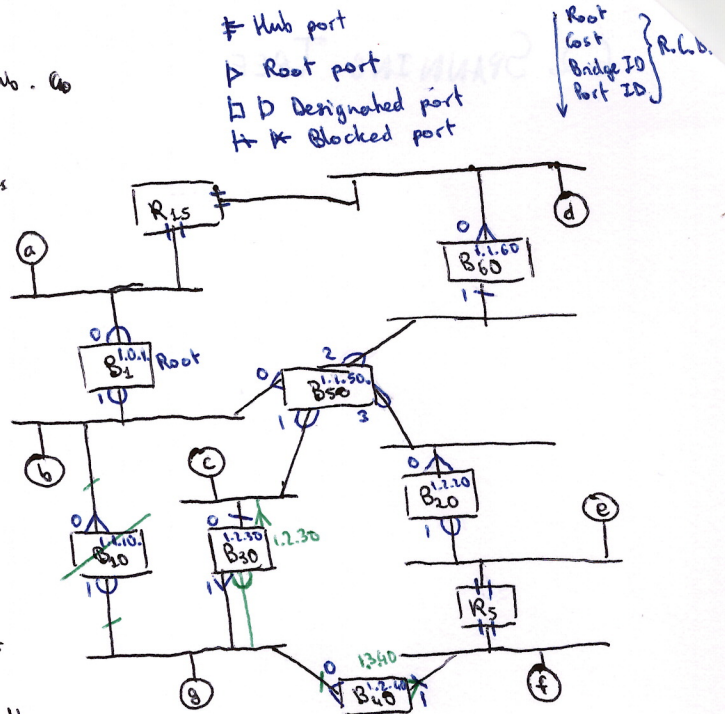 Hub port
Root port
Designated port
Blocked port
Root
Cost
Bridge ID
Port ID
R.C.D.
R15
d
a
0
1.1.60
B60
1
0
1.0.1.
B1
Root
1
2
0
1.1.50.
B50
1
3
b
c
0
1.2.20
B20
1
e
0
1.1.10.
B10
1
0
1.2.30
B30
1
1.2.30
R5
g
0
1.3.40
1.2.40
B40
1
f